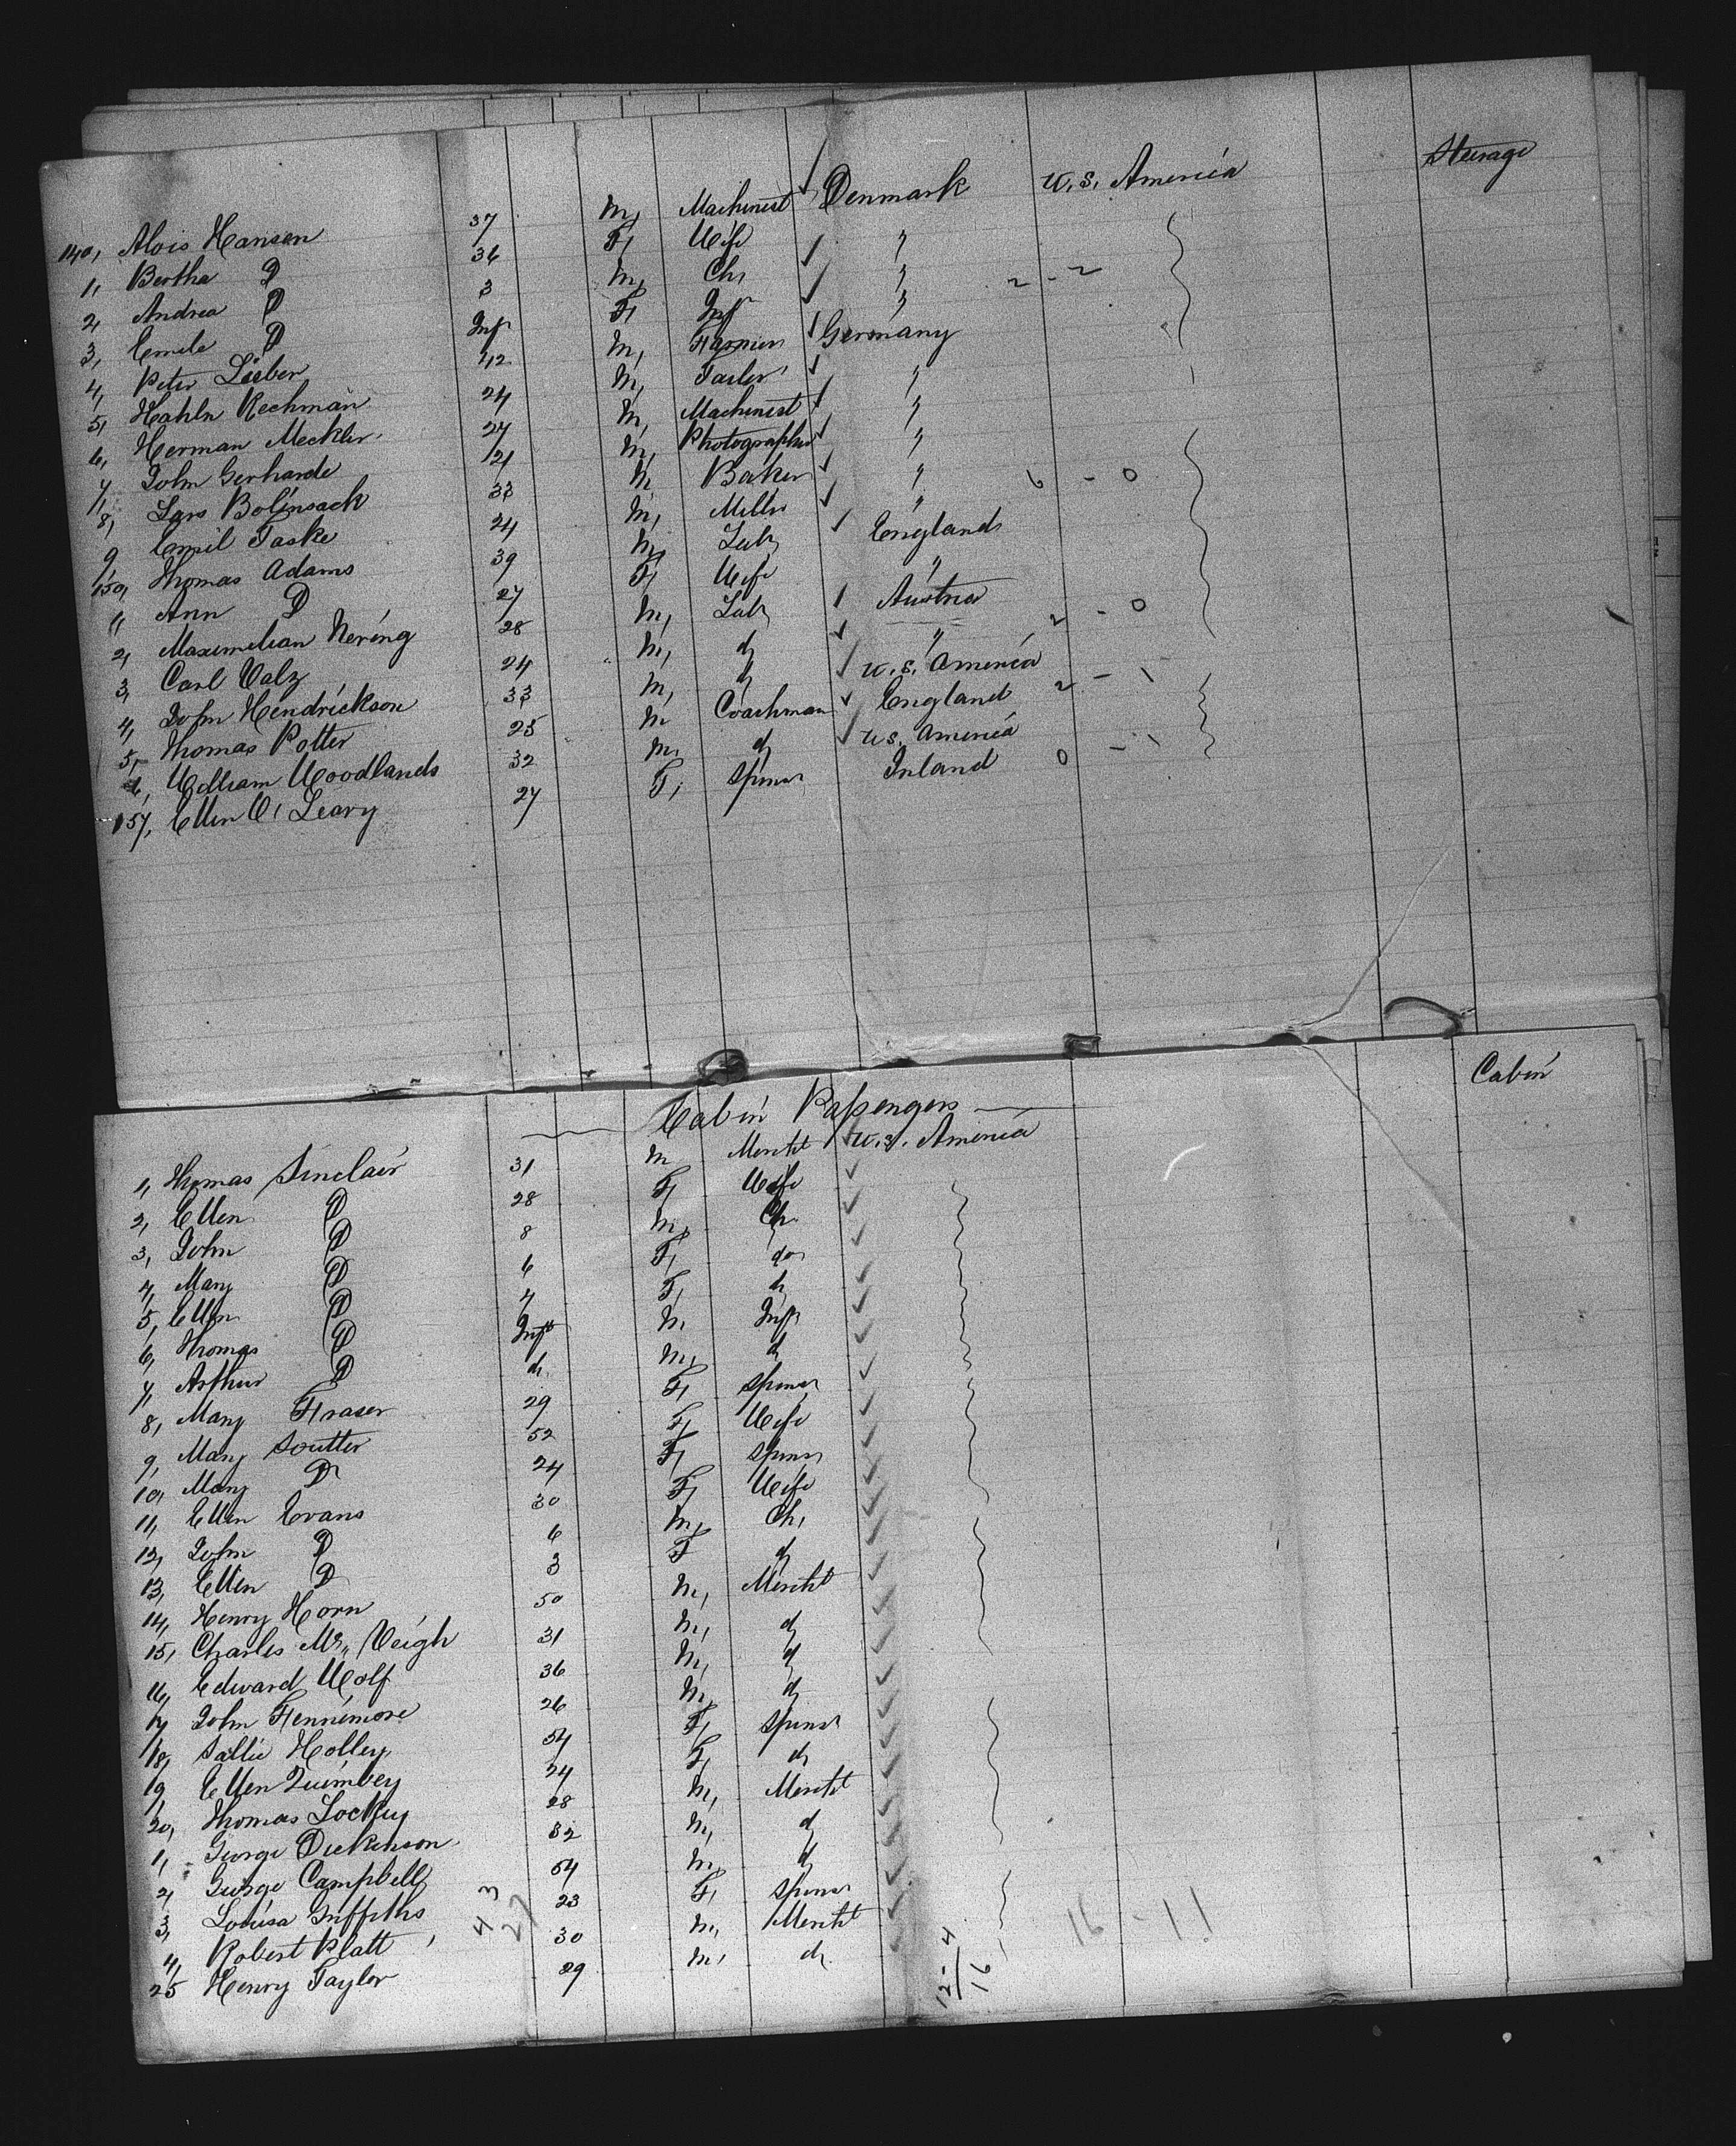 140, Alois Hansen 37 M, Machinist Denmark U.S. America Steerage
1, Bertha D 36 F, Wife "
2, Andrea D 3 M, Ch, " 2 - 2
3, Emile D Inf F, Inf "
4, Peter Lieber 42 M, Farmier Germany
5, Hahln Rechman 24 M, Tailer "
6, Herman Meckler 27 M, Machinist "
7, John Gerharde 21 M, Photographer "
8, Lars Bolinsack 33 M, Baker " 6 - 0
9, Emil Taske 24 M, Miller "
150, Thomas Adams 39 M, Lab, England
1, Ann D 27 F, Wife "
2, Maximilian Nering 28 M, Lab, Austria 2 - 0
3, Carl Valz 24 M, d, "
4, John Hendrickson 33 M, d, U.S. America
5, Thomas Potter 25 M Coachman England 2 - 1
6, William Woodlands 32 M, d, U.S. America
157, Ellen O'Leary 27 F, Spinsr Inland 0 - 1
Cabin
Cabin Passengers
1, Thomas Sinclair 31 M Mercht U.S. America
2, Ellen D 28 F, Wife
3, John D 8 M, Ch.
4, Mary D 6 F, do
5, Ellen D 4 F, d,
6, Thomas D Inft M, Inft
7, Arthur D d, M, d,
8, Mary Fraser 29 F, Spinsr
9, Mary Soutter 52 F, Wife
10, Mary D 24 F, Spinsr
11, Ellen Evans 30 F, Wife
12, John D 6 M, Ch,
13, Ellen D 3 F d,
14, Henry Horn 50 M, Mercht
15, Charles Mc Veigh 31 M, d,
16, Edward Wolf 36 M, d,
17, John Fennimore 26 M, d,
18, Sallie Holley 54 F, Spinsr
19, Ellen Quimbey 24 F, d,
20, Thomas Lockey 28 M, Mercht
1, George Dickenson 32 M, d,
2, George Campbell 54 M, d,
3, Louisa Griffiths 23 F, Spinsr
4, Robert Platt 30 M, Mercht
25 Henry Taylor 29 M, d,
43
27
12-4
16
16 - 11